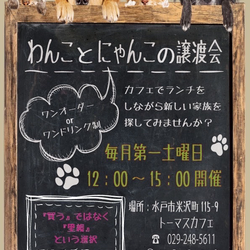 わんことにゃんこの譲渡会
カフェでランチを
しながら新しい家族を
探してみませんか？
ワンオーダー
or
ワンドリンク制
毎月第一土曜日
12：00～15：00開催
場所：水戸市米沢町115-9
トーマスカフェ
☎ 029-248-5611
『買う』ではなく
『里親』
という選択